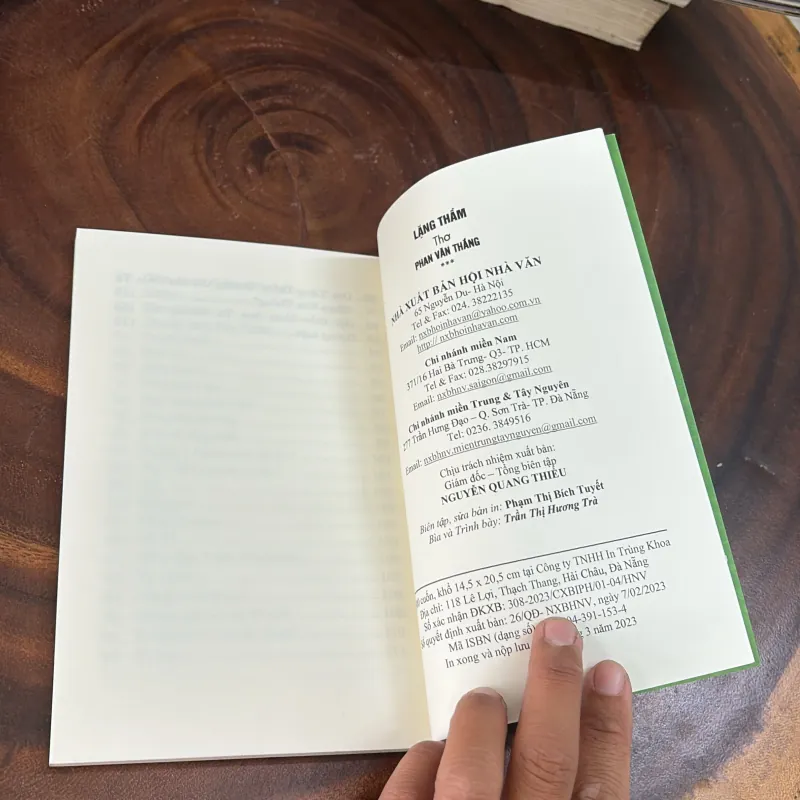 LẶNG THẦM
Thơ
PHAN VĂN THẮNG
***
NHÀ XUẤT BẢN HỘI NHÀ VĂN
65 Nguyễn Du- Hà Nội
Tel & Fax: 024. 38222135
Email: nxbhoinhavan@yahoo.com.vn
http:// nxbhoinhavan.com
Chi nhánh miền Nam
371/16 Hai Bà Trưng- Q3- TP. HCM
Tel & Fax: 028.38297915
Email: nxbhnv.saigon@gmail.com
Chi nhánh miền Trung & Tây Nguyên
277 Trần Hưng Đạo – Q. Sơn Trà- TP. Đà Nẵng
Tel: 0236. 3849516
Email: nxbhnv.mientrungtaynguyen@gmail.com
Chịu trách nhiệm xuất bản:
Giám đốc – Tổng biên tập
NGUYỄN QUANG THIỀU
Biên tập, sửa bản in: Phạm Thị Bích Tuyết
Bìa và Trình bày: Trần Thị Hương Trà
cuốn, khổ 14,5 x 20,5 cm tại Công ty TNHH In Trùng Khoa
Địa chỉ: 118 Lê Lợi, Thạch Thang, Hải Châu, Đà Nẵng
Số xác nhận ĐKXB: 308-2023/CXBIPH/01-04/HNV
Số quyết định xuất bản: 26/QĐ- NXBHNV, ngày 7/02/2023
Mã ISBN (dạng số) 04-391-153-4
In xong và nộp lưu 3 năm 2023